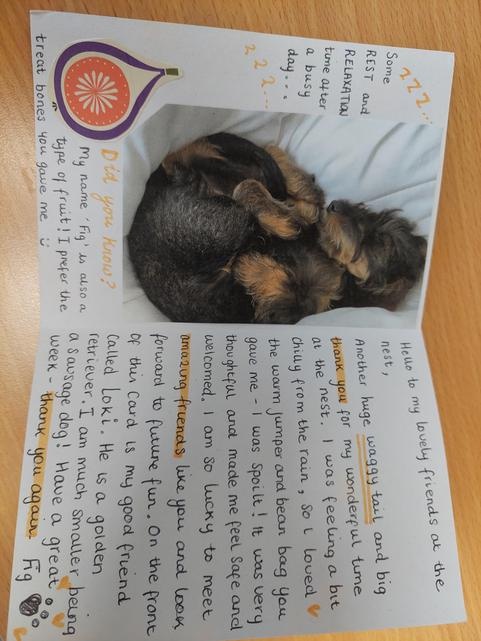 Some
REST and
RELAXATION
time after
a busy
day...
zzz...
zzz...
Did you know?
My name 'Fig' is also a
type of fruit! I prefer the
treat bones you gave me
Hello to my lovely friends at the
nest,
Another huge waggy tail and big
thank you for my wonderful time
at the nest. I was feeling a bit
chilly from the rain, so I loved
the warm jumper and bean bag you
gave me - I was spoilt! It was very
thoughtful and made me feel safe and
welcomed. I am so lucky to meet
amazing friends like you and look
forward to future fun. On the front
of this card is my good friend
called Loki. He is a golden
retriever. I am much smaller being
a sausage dog! Have a great
week - thank you again.
Fig